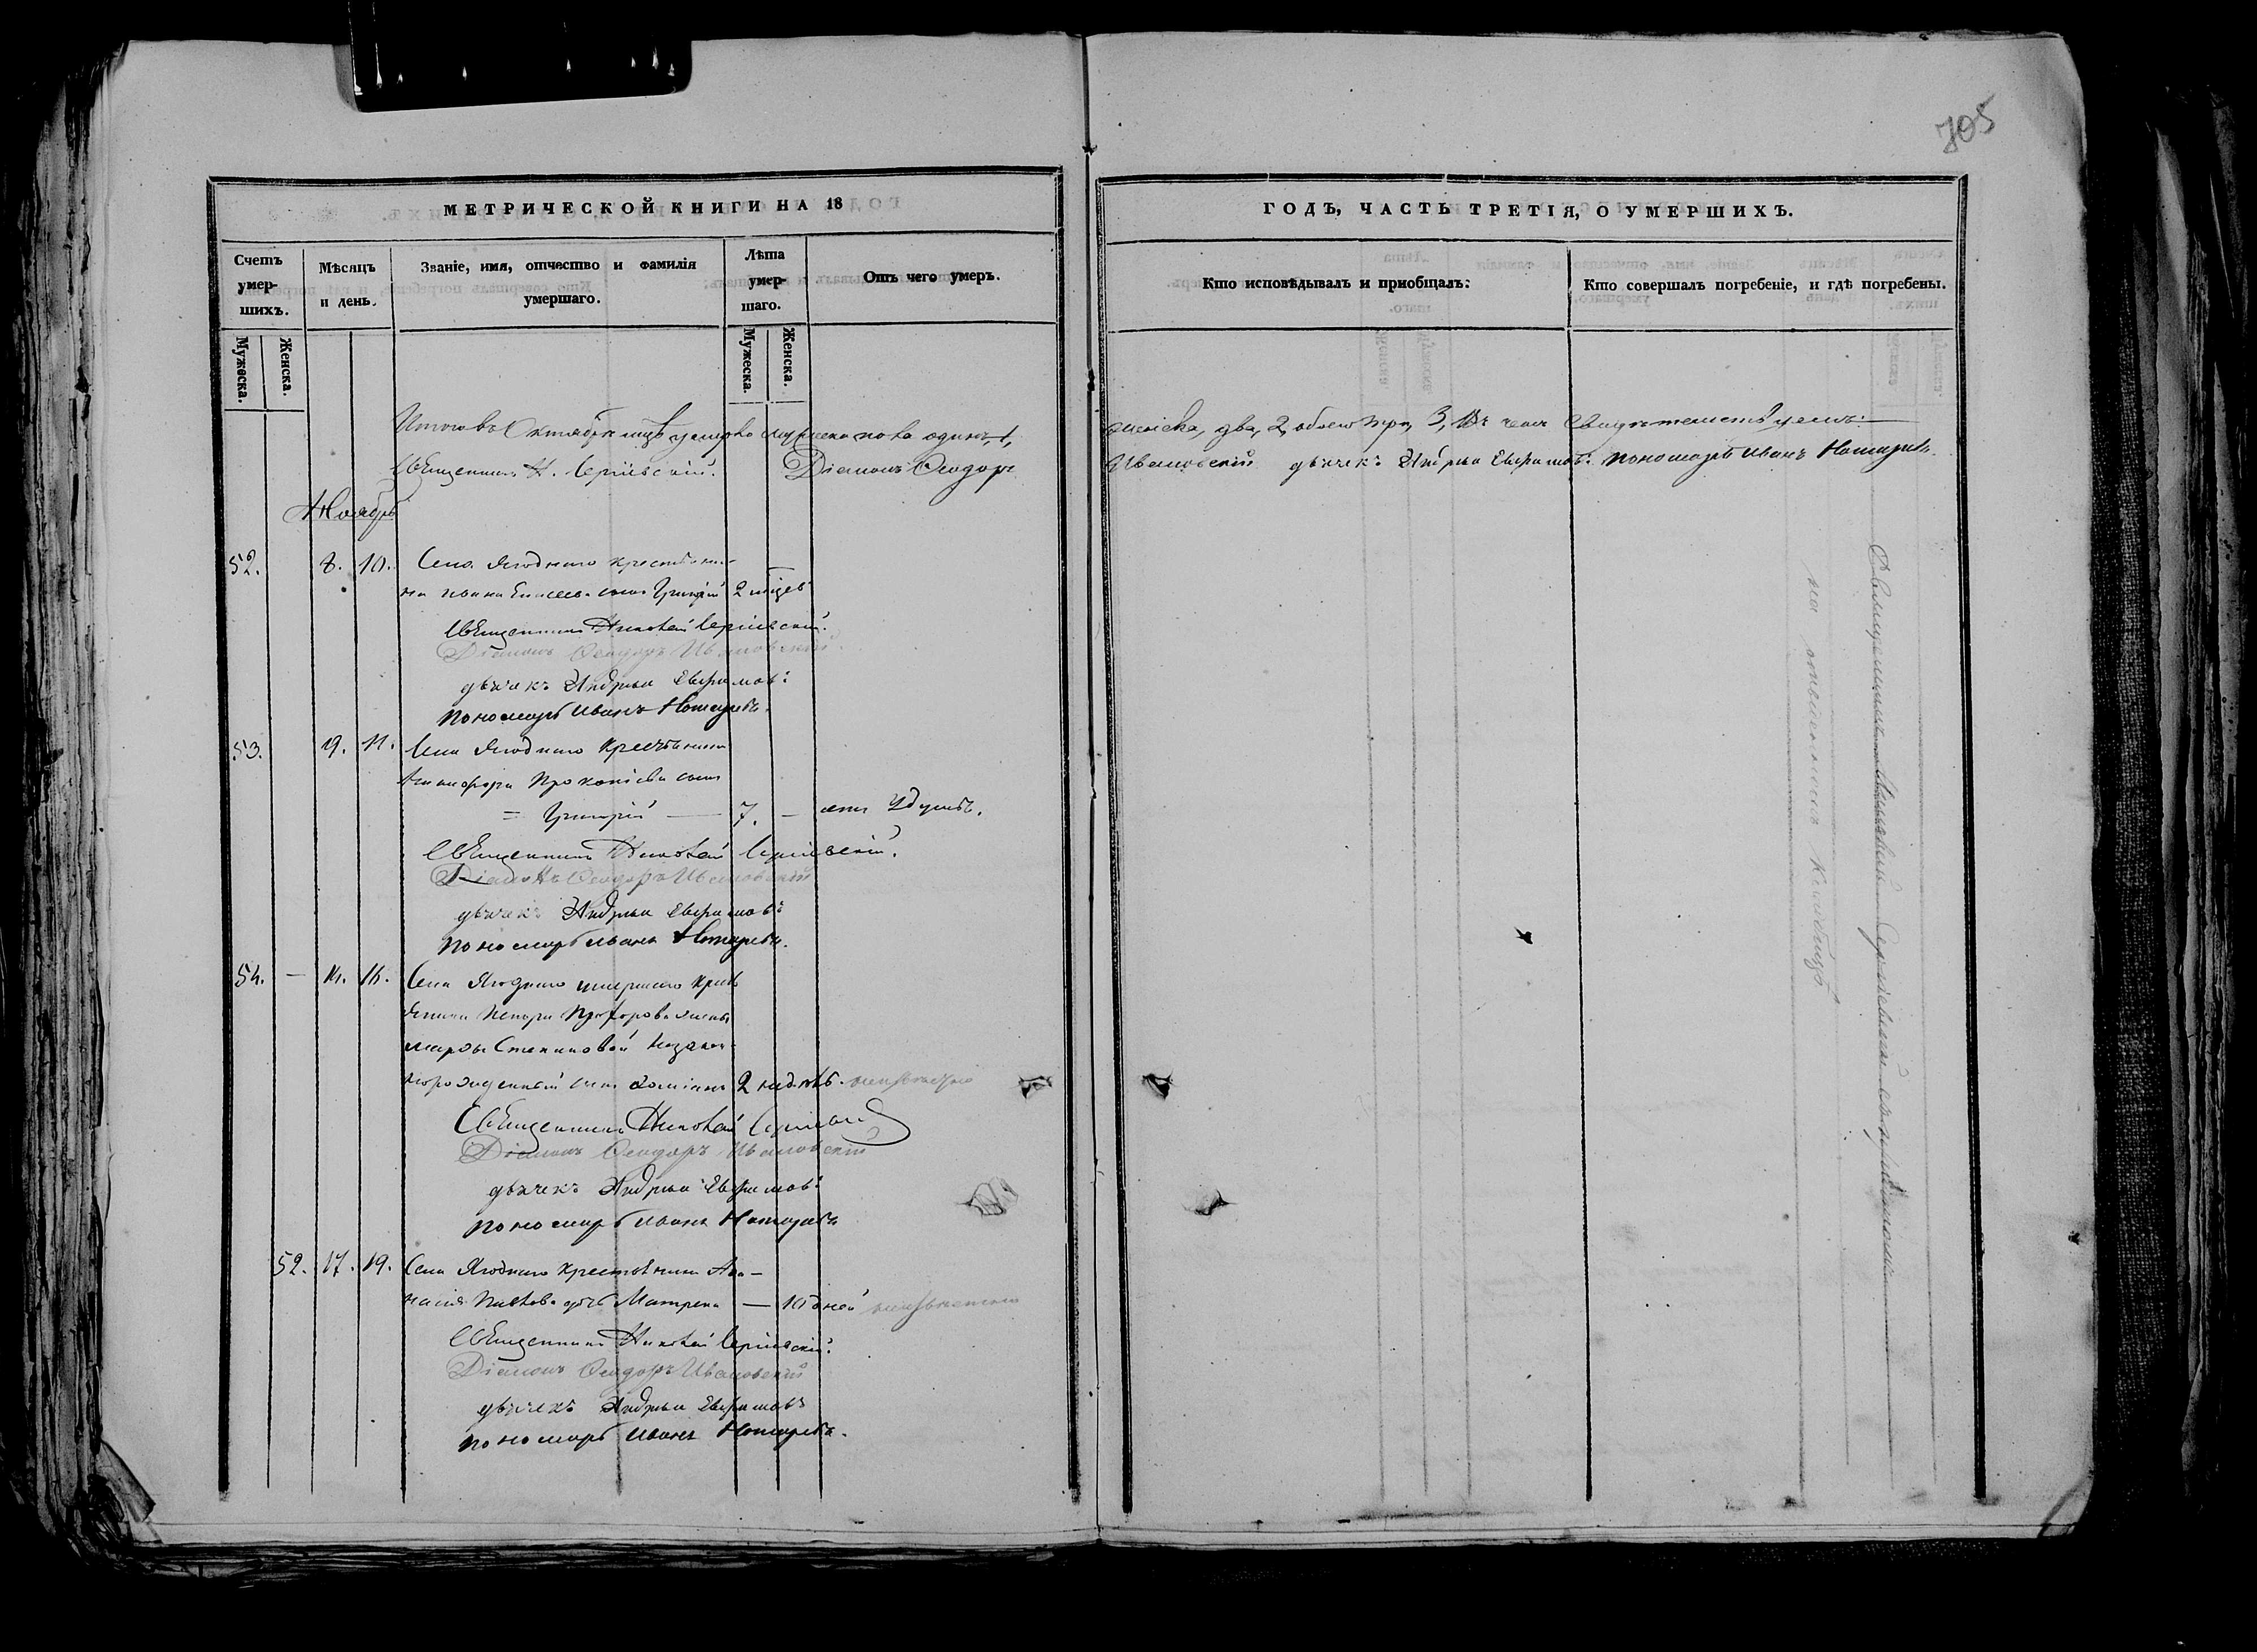 705
МЕТРИЧЕСКОЙ КНИГИ НА 18
ГОДЪ, ЧАСТЬ ТРЕТІЯ, О УМЕРШИХЪ.
Счетъ умер-шихъ.
Мѣсяцъ и день.
Званіе, имя, отчество и фамилія умершаго.
Лѣта умер-шаго.
Отъ чего умеръ.
Кто исповѣдывалъ и пріобщалъ:
Кто совершалъ погребеніе, и гдѣ погребены.
Мужеска.
Женска.
Мужеска.
Женска.
Итого въ Октябрѣ умерло мужеска пола одинъ, 1,
женска, два, 2, обоего три, 3, Въ чемъ свидѣтельствуемъ:
Священникъ Н. Сергіевскій. Діаконъ Ѳеодоръ
Ивановскій дьячекъ Андрей Евфимовъ. пономарь Иванъ
Ноябрь
52. 8. 10. Села Ягоднаго крестьяни-
на Ивана Елисеева сынъ Григорій 2 мѣсяцевъ
Священникъ Николай Сергіевскій.
Діаконъ Ѳеодоръ Ивановскій.
дьячекъ Андрей Евфимовъ:
пономарь Иванъ
53. 9. 11. Села Ягоднаго Крестьянина
Прокопіева сынъ
= Григорій — 7. —
Священникъ Николай Сергіевскій.
Діаконъ Ѳеодоръ Ивановскій
дьячекъ Андрей Евфимовъ:
пономарь Иванъ
54. — 14. 16. Села Ягоднаго умершаго крест
янина Петра Прохорова жены
Марѳы Степановой незакон-
норожденный сынъ 2 недѣль. неизвѣстно
Священникъ Николай Сергіевскій
Діаконъ Ѳеодоръ Ивановскій
дьячекъ Андрей Евфимовъ:
пономарь Иванъ
52. 17. 19. Села Ягоднаго крестьянина Аѳа-
насія Павлова дочь Матрена — 10 дней неизвѣстно
Священникъ Николай Сергіевскій.
Діаконъ Ѳеодоръ Ивановскій
дьячекъ Андрей Евфимовъ
пономарь Иванъ
Священникъ Николай Сергіевскій
на кладбищѣ